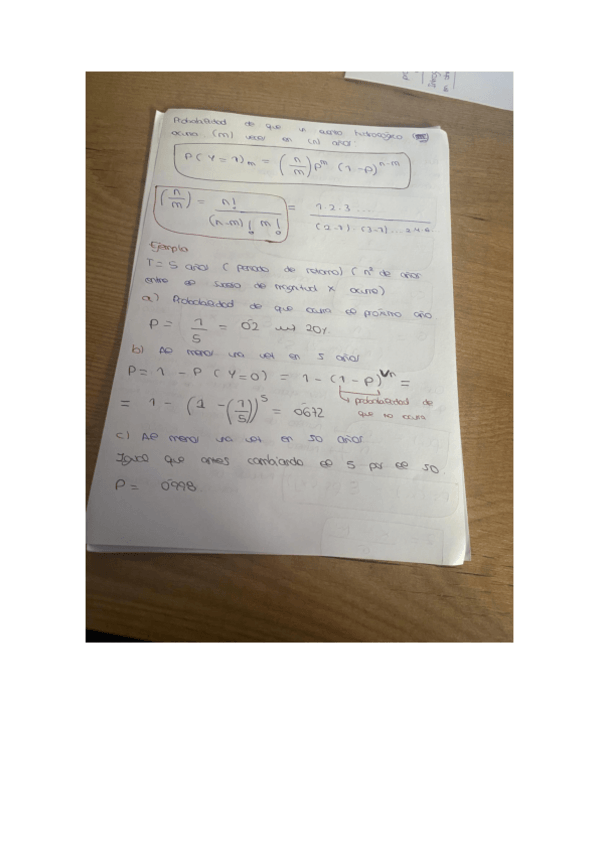 Probabilidad de que un suceso hidrologico
ocurra (m) veces en (n) años:
P(Y=1)m = (n/m) p^m (1-p)^n-m
(n/m) = n! / (n-m)! m! = 1.2.3.... / (2-1).(3-1)...
Ejemplo
T= 5 años (periodo de retorno) (nº de años
entre ce suceso de magnitud x ocurre)
a) Probabilidad de que ocurra ce próximo año
P = 1/5 = 0'2 20%
b) Al menos una vez en 5 años
P= 1 - P (Y=0) = 1 - (1 - P)^n =
probabilidad de
que no ocurra
= 1 - (1 - (1/5))^5 = 0'672
c) Al menos una vez en 50 años
Igual que antes cambiando ce 5 por ce 50
P = 0'998